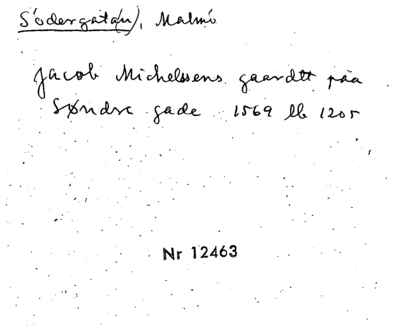 Södergata(n), Malmö
Jacob Michelssens gaardtt paa
Søndre gade 1569 lb 1205
Nr 12463